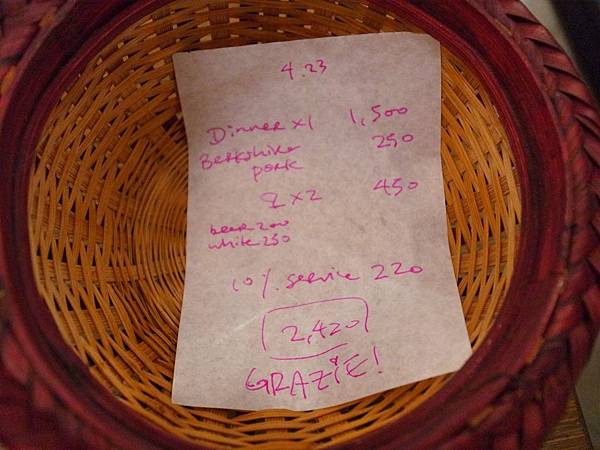 4.23
Dinner x1 1,500
Berkshire 250
pork
x2 450
beer 200
white 250
10% service 220
2,420
GRAZIE!